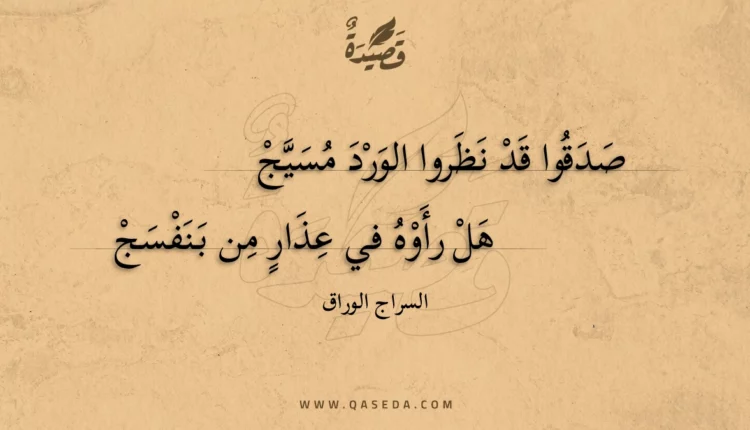 قَصِيْدَةٌ
صَدَقُوا قَدْ نَظَروا الوَرْدَ مُسَيَّجْ
هَلْ رأَوْهُ في عِذَارٍ مِن بَنَفْسَجْ
السراج الوراق
WWW.QASEDA.COM